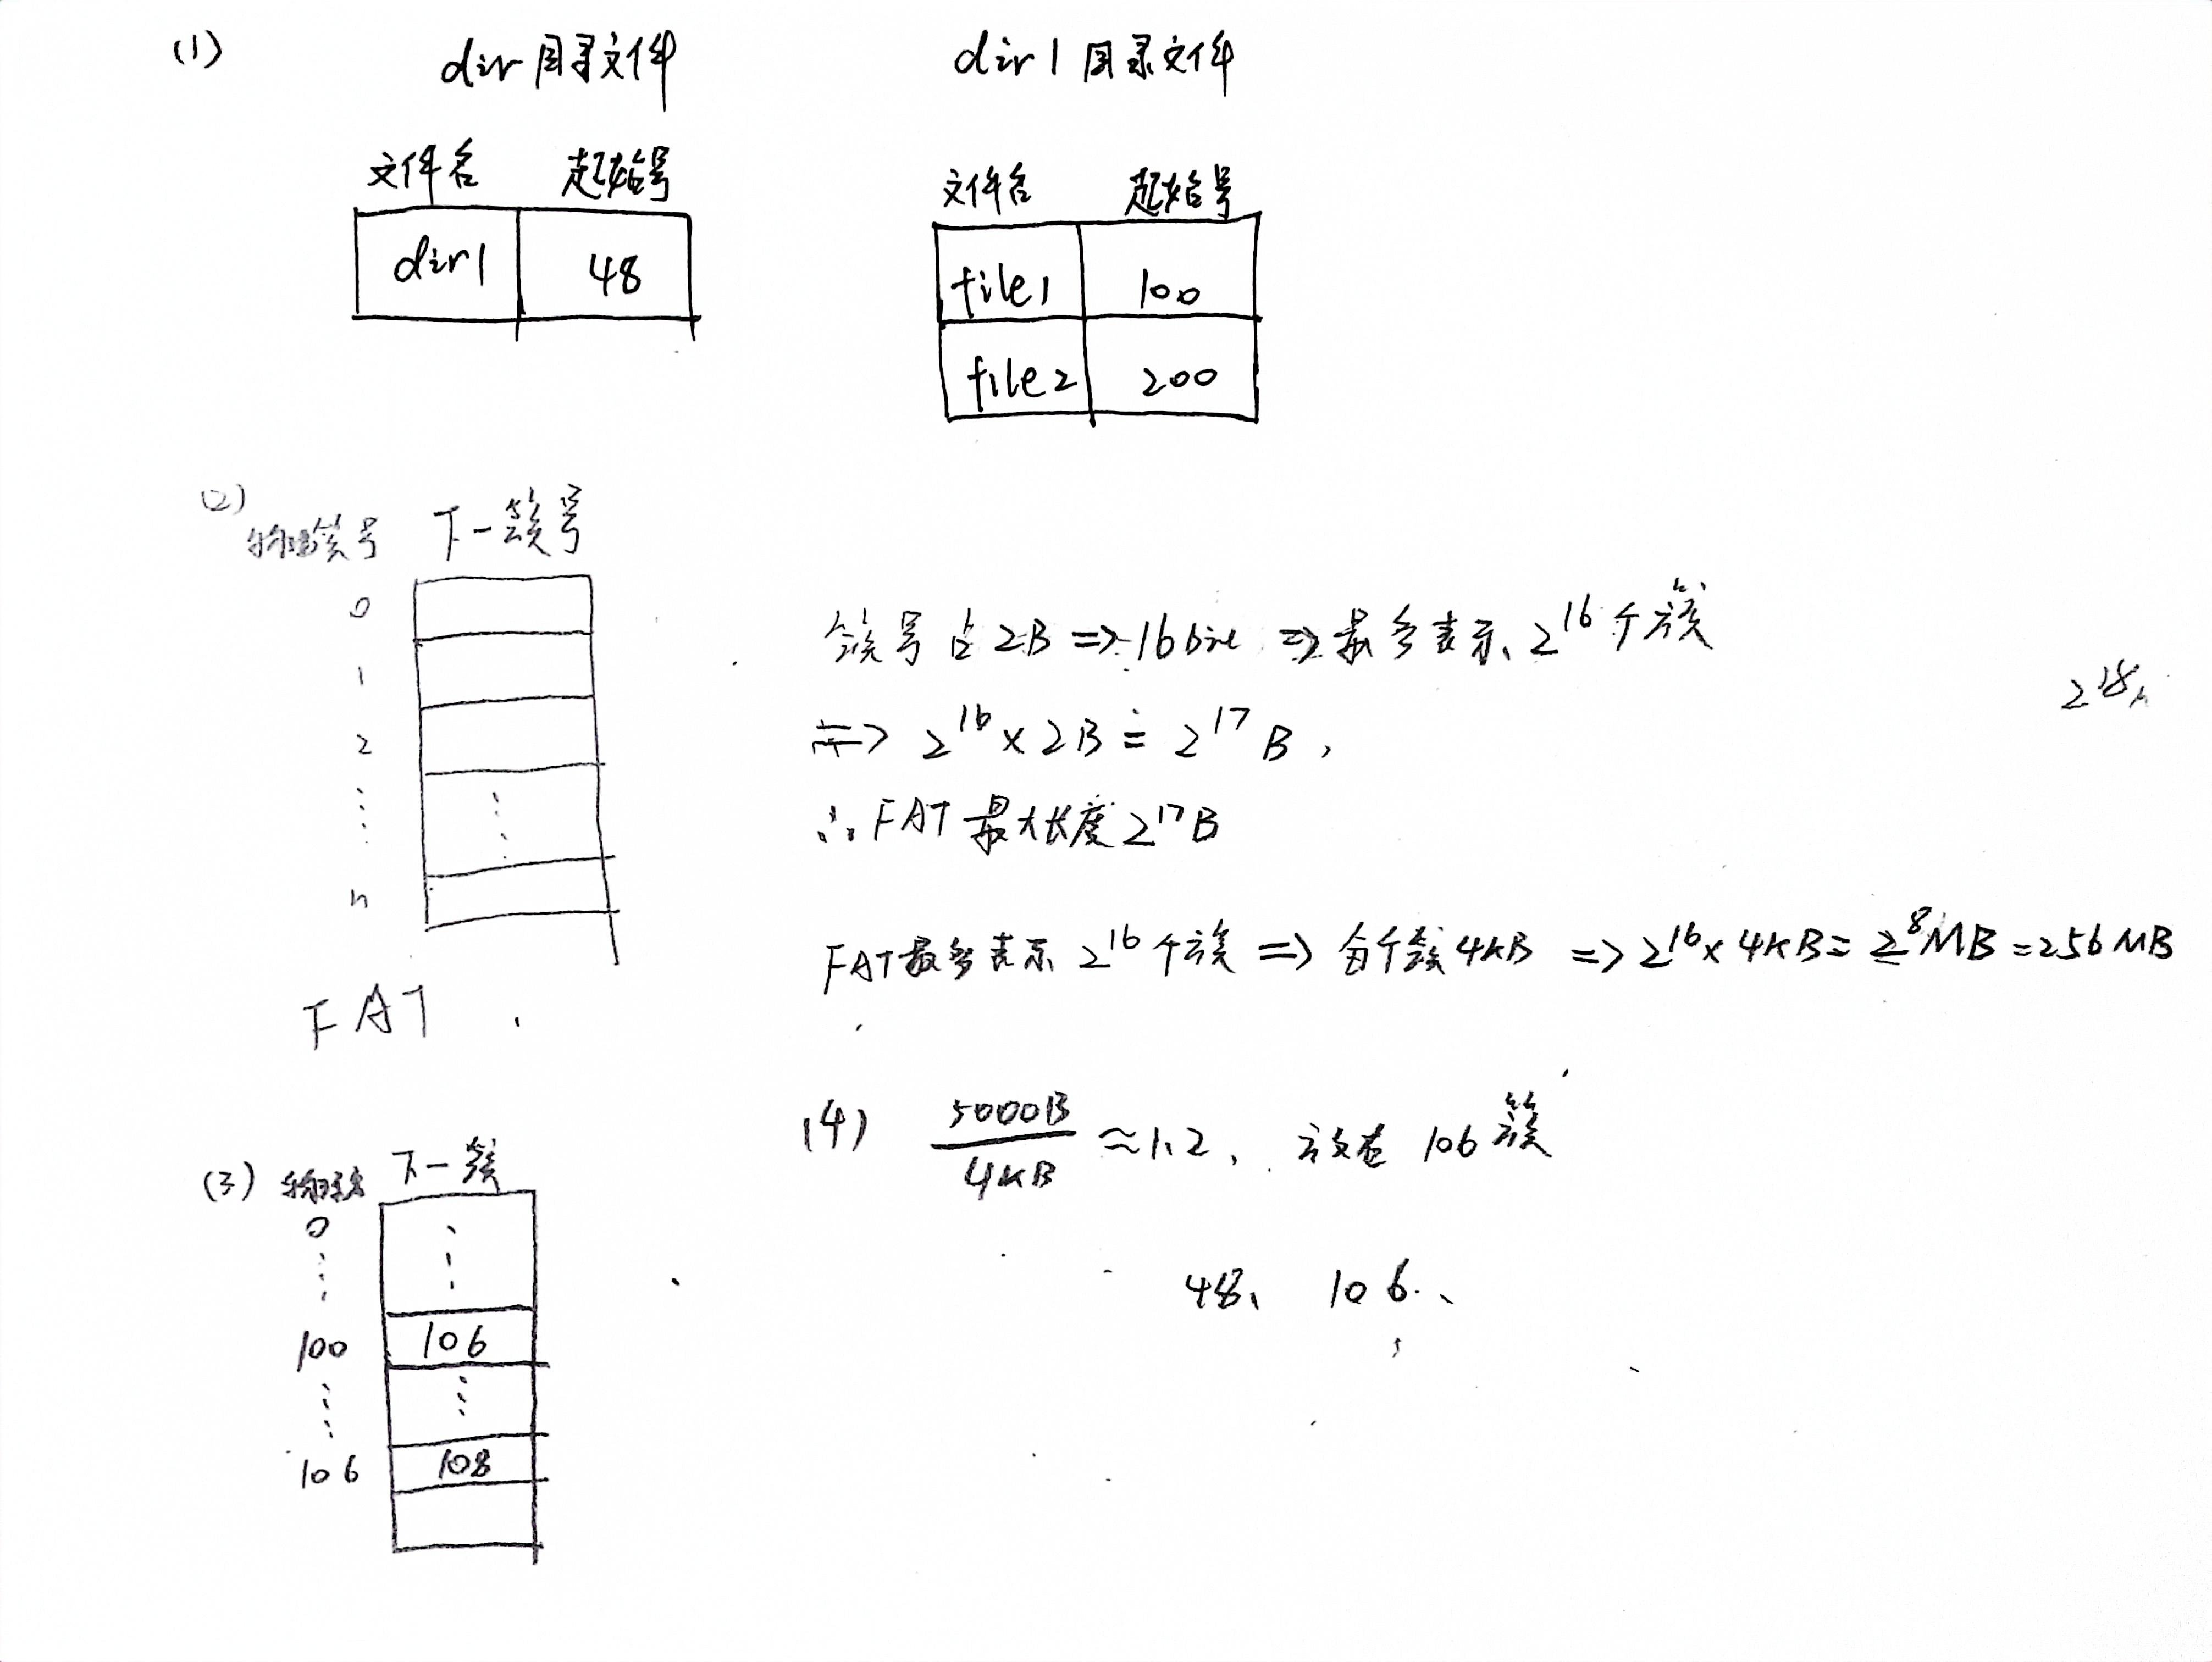 (1)
dir目录文件
文件名 起始号
dir1 48
dir1目录文件
文件名 起始号
file1 100
file2 200
(2)
物理簇号 下一簇号
0
1
2
⋮ ⋮
n
FAT
簇号占2B => 16bit => 最多表示、2^16个簇
=> 2^16 × 2B = 2^17 B,
∴ FAT最大长度2^17B
FAT最多表示 2^16个簇 => 每个簇4KB => 2^16 × 4KB = 2^8MB = 256MB
(3)
下一簇
0 ⋮
⋮
100 106
⋮ ⋮
106 108
(4) 5000B/4KB ≈ 1.2, 故在 106簇
48、 106、